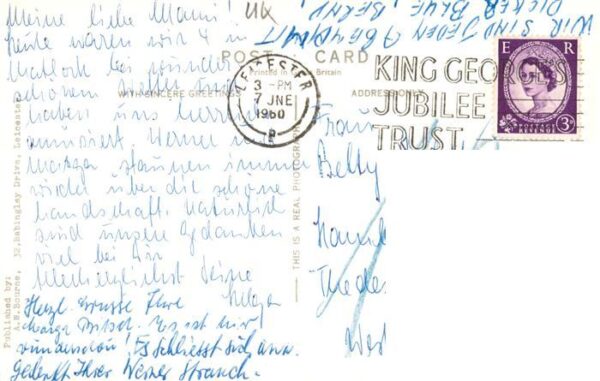 UK
WIR SIND JEDEN ABEND MIT
DICKER BLUE, BERND
Meine liebe Mami!
heute waren wir 4 in
Matlock bei wunder
schönem
haben uns herrlich
amüsiert. Werner und
staunen immer
wieder über die schöne
Landschaft. Natürlich
sind unsere Gedanken
viel bei Dir
Deine
Helga
Herzl. Grüsse Ihre
Es ist hier
wunderschön! Es schliesst sich an u.
gedenkt Ihrer Werner Strauch.
POST CARD
Printed in Great Britain
WITH SINCERE GREETINGS
ADDRESS ONLY
LEICESTER
3 - PM
7 JNE
1960
KING GEORGE'S
JUBILEE
TRUST
E R
POSTAGE
REVENUE
3D
Frau
Betty
THIS IS A REAL PHOTOGRAPH
Published by:
A.W.Bourne, 32,Babingley Drive, Leicester